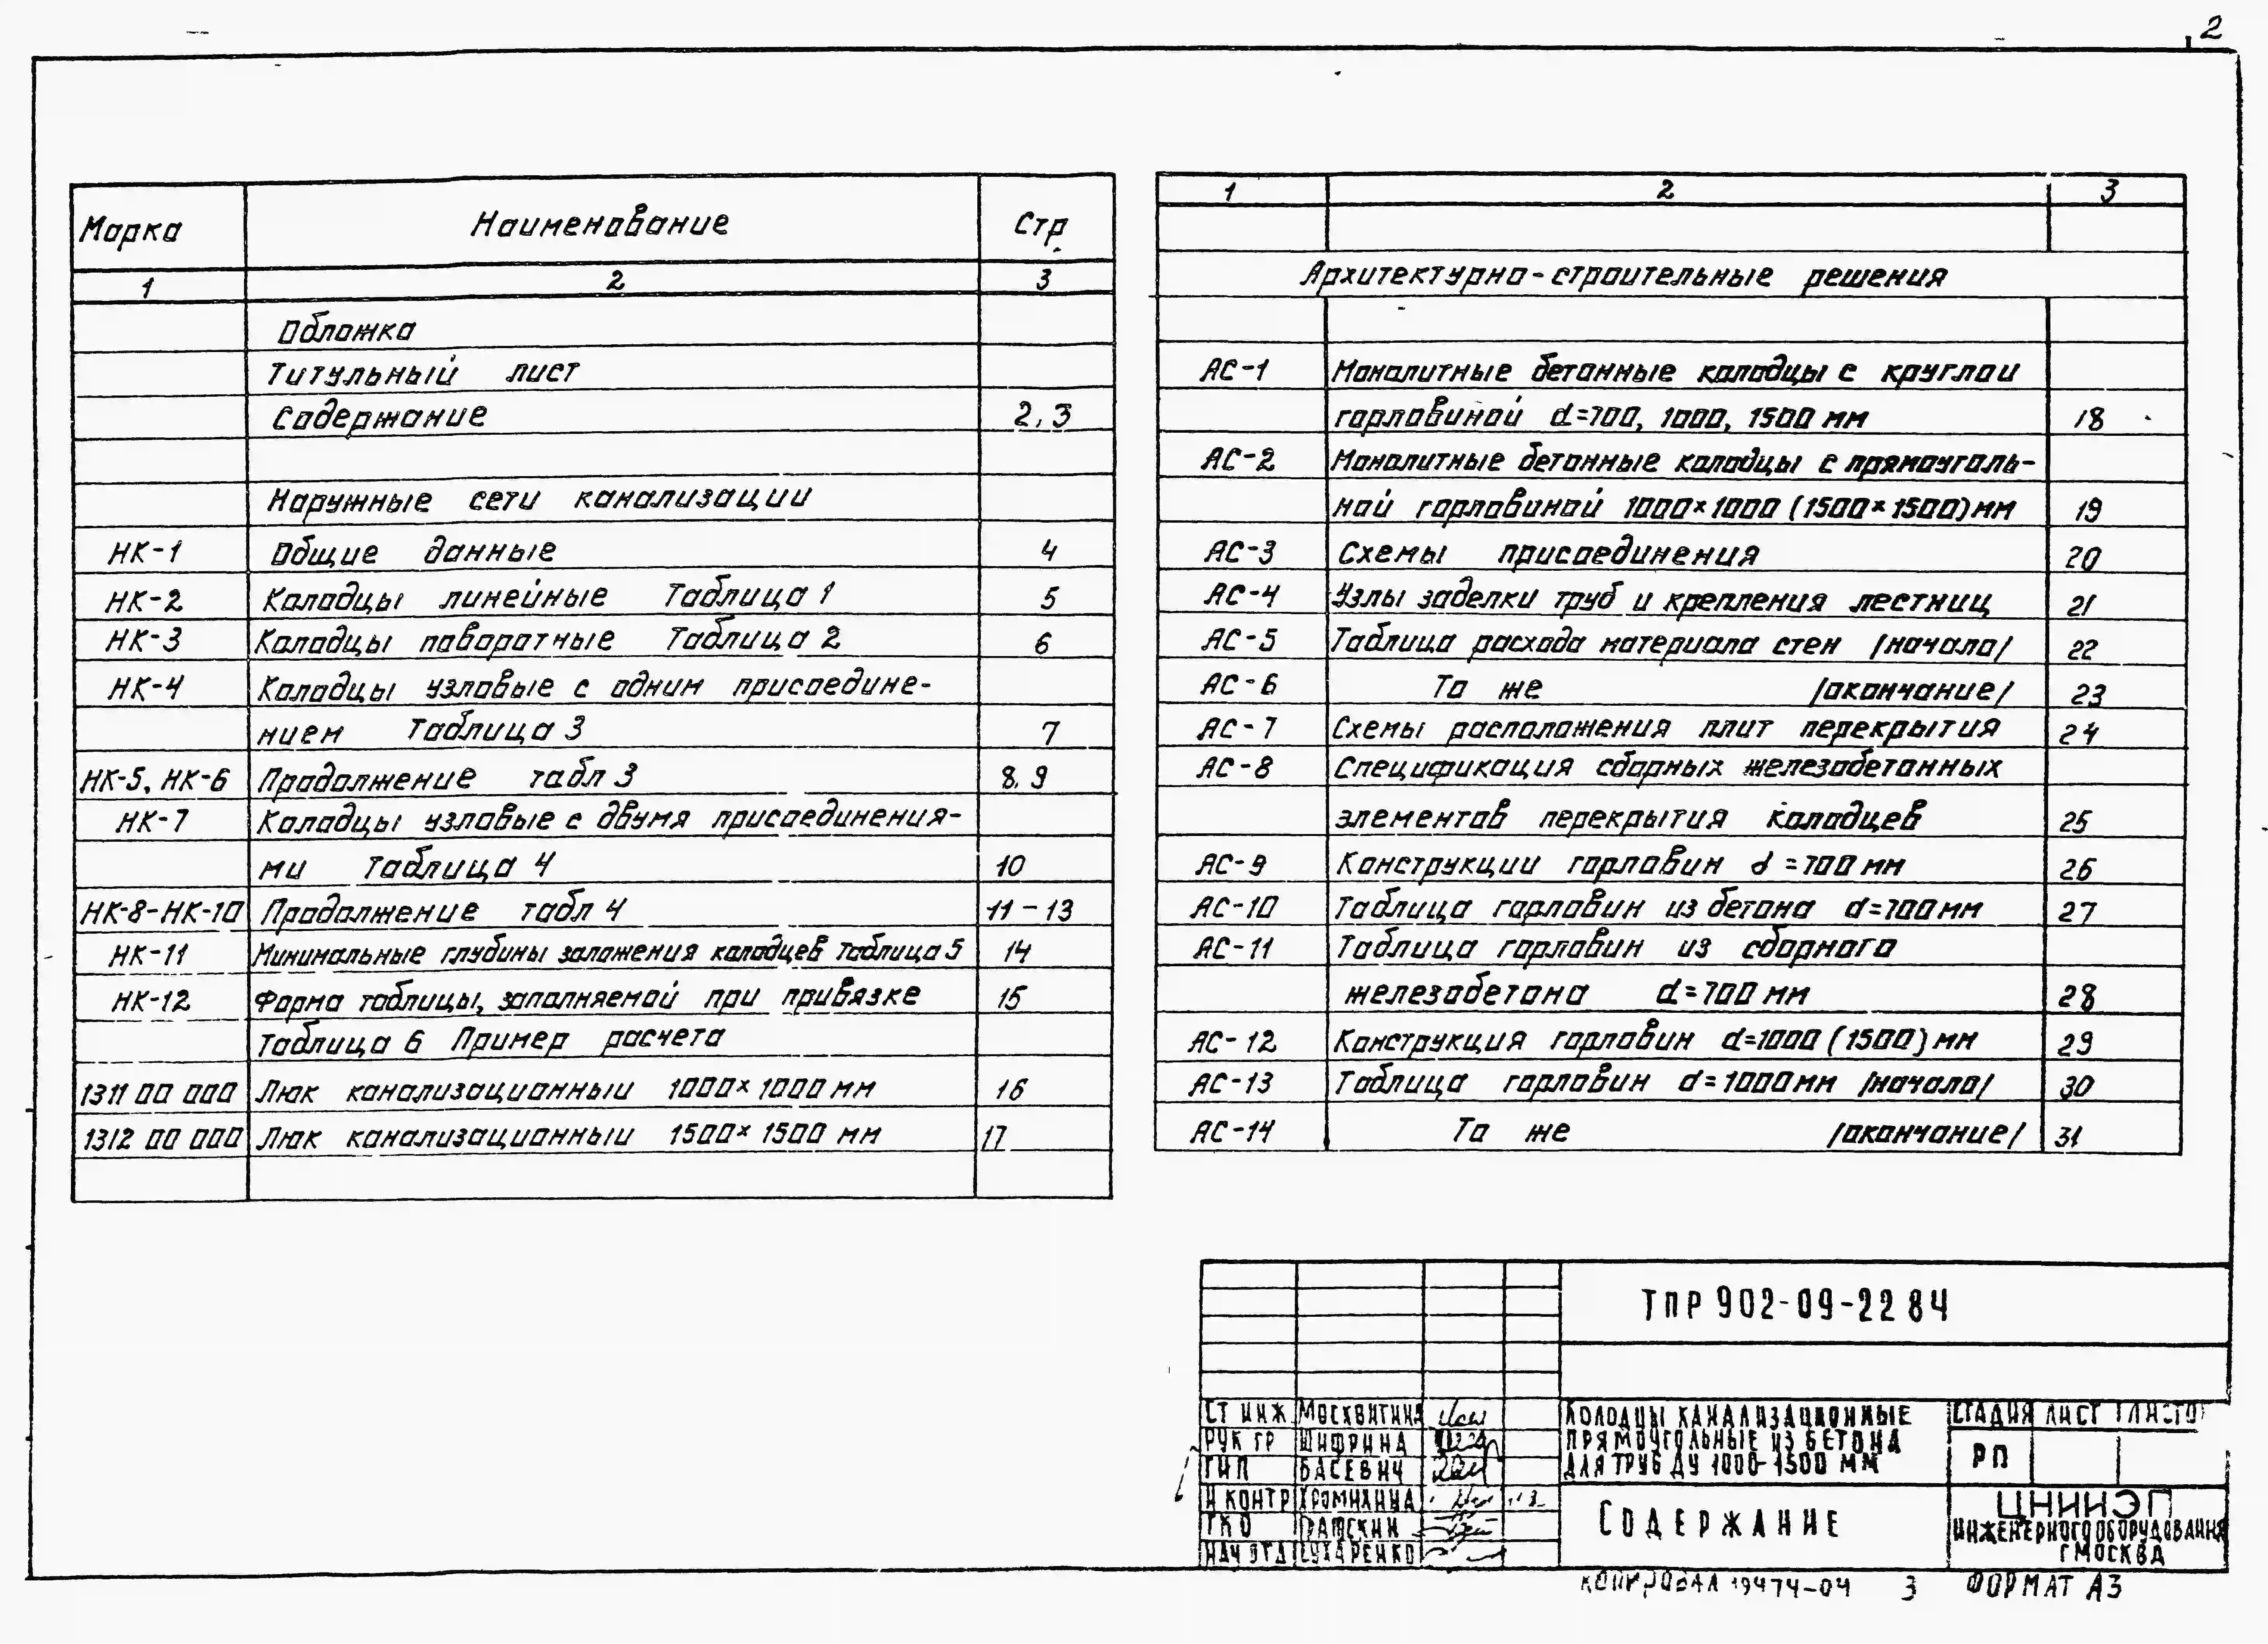 2
Марка Наименование Стр
1 2 3
Обложка
Титульный лист
Содержание 2,3
Наружные сети канализации
НК-1 Общие данные 4
НК-2 Колодцы линейные Таблица 1 5
НК-3 Колодцы поворотные Таблица 2 6
НК-4 Колодцы узловые с одним присоедине-
нием Таблица 3 7
НК-5, НК-6 Продолжение табл 3 8,9
НК-7 Колодцы узловые с двумя присоединения-
ми Таблица 4 10
НК-8-НК-10 Продолжение табл 4 11-13
НК-11 Минимальные глубины заложения колодцев Таблица 5 14
НК-12 Форма таблицы, заполняемой при привязке 15
Таблица 6 Пример расчета
1311 00 000 Люк канализационный 1000×1000 мм 16
1312 00 000 Люк канализационный 1500×1500 мм 17
1 2 3
Архитектурно-строительные решения
АС-1 Монолитные бетонные колодцы с круглой
горловиной d=700, 1000, 1500 мм 18
АС-2 Монолитные бетонные колодцы с прямоуголь-
ной горловиной 1000×1000 (1500×1500)мм 19
АС-3 Схемы присоединения 20
АС-4 Узлы заделки труб и крепления лестниц 21
АС-5 Таблица расхода материала стен /начало/ 22
АС-6 То же /окончание/ 23
АС-7 Схемы расположения плит перекрытия 24
АС-8 Спецификация сборных железобетонных
элементов перекрытия колодцев 25
АС-9 Конструкции горловин d=700мм 26
АС-10 Таблица горловин из бетона d=700мм 27
АС-11 Таблица горловин из сборного
железобетона d=700 мм 28
АС-12 Конструкция горловин d=1000 (1500) мм 29
АС-13 Таблица горловин d=1000мм /начало/ 30
АС-14 То же /окончание/ 31
ТПР 902-09-22 84
СТ ИНЖ МОСКВИТИНА
РУК ГР ШИФРИНА
ГИП БАСЕВИЧ
Н КОНТР ХРОМИХИНА
ГКО
НАЧ ОТД СУХАРЕНКО
КОЛОДЦЫ КАНАЛИЗАЦИОННЫЕ
ПРЯМОУГОЛЬНЫЕ ИЗ БЕТОНА
ДЛЯ ТРУБ ДУ 1000-1500 ММ
СТАДИЯ ЛИСТ ЛИСТОВ
РП
СОДЕРЖАНИЕ
ЦНИИЭП
ИНЖЕНЕРНОГО ОБОРУДОВАНИЯ
Г МОСКВА
КОПИРОВАЛ 19474-04 3 ФОРМАТ А3